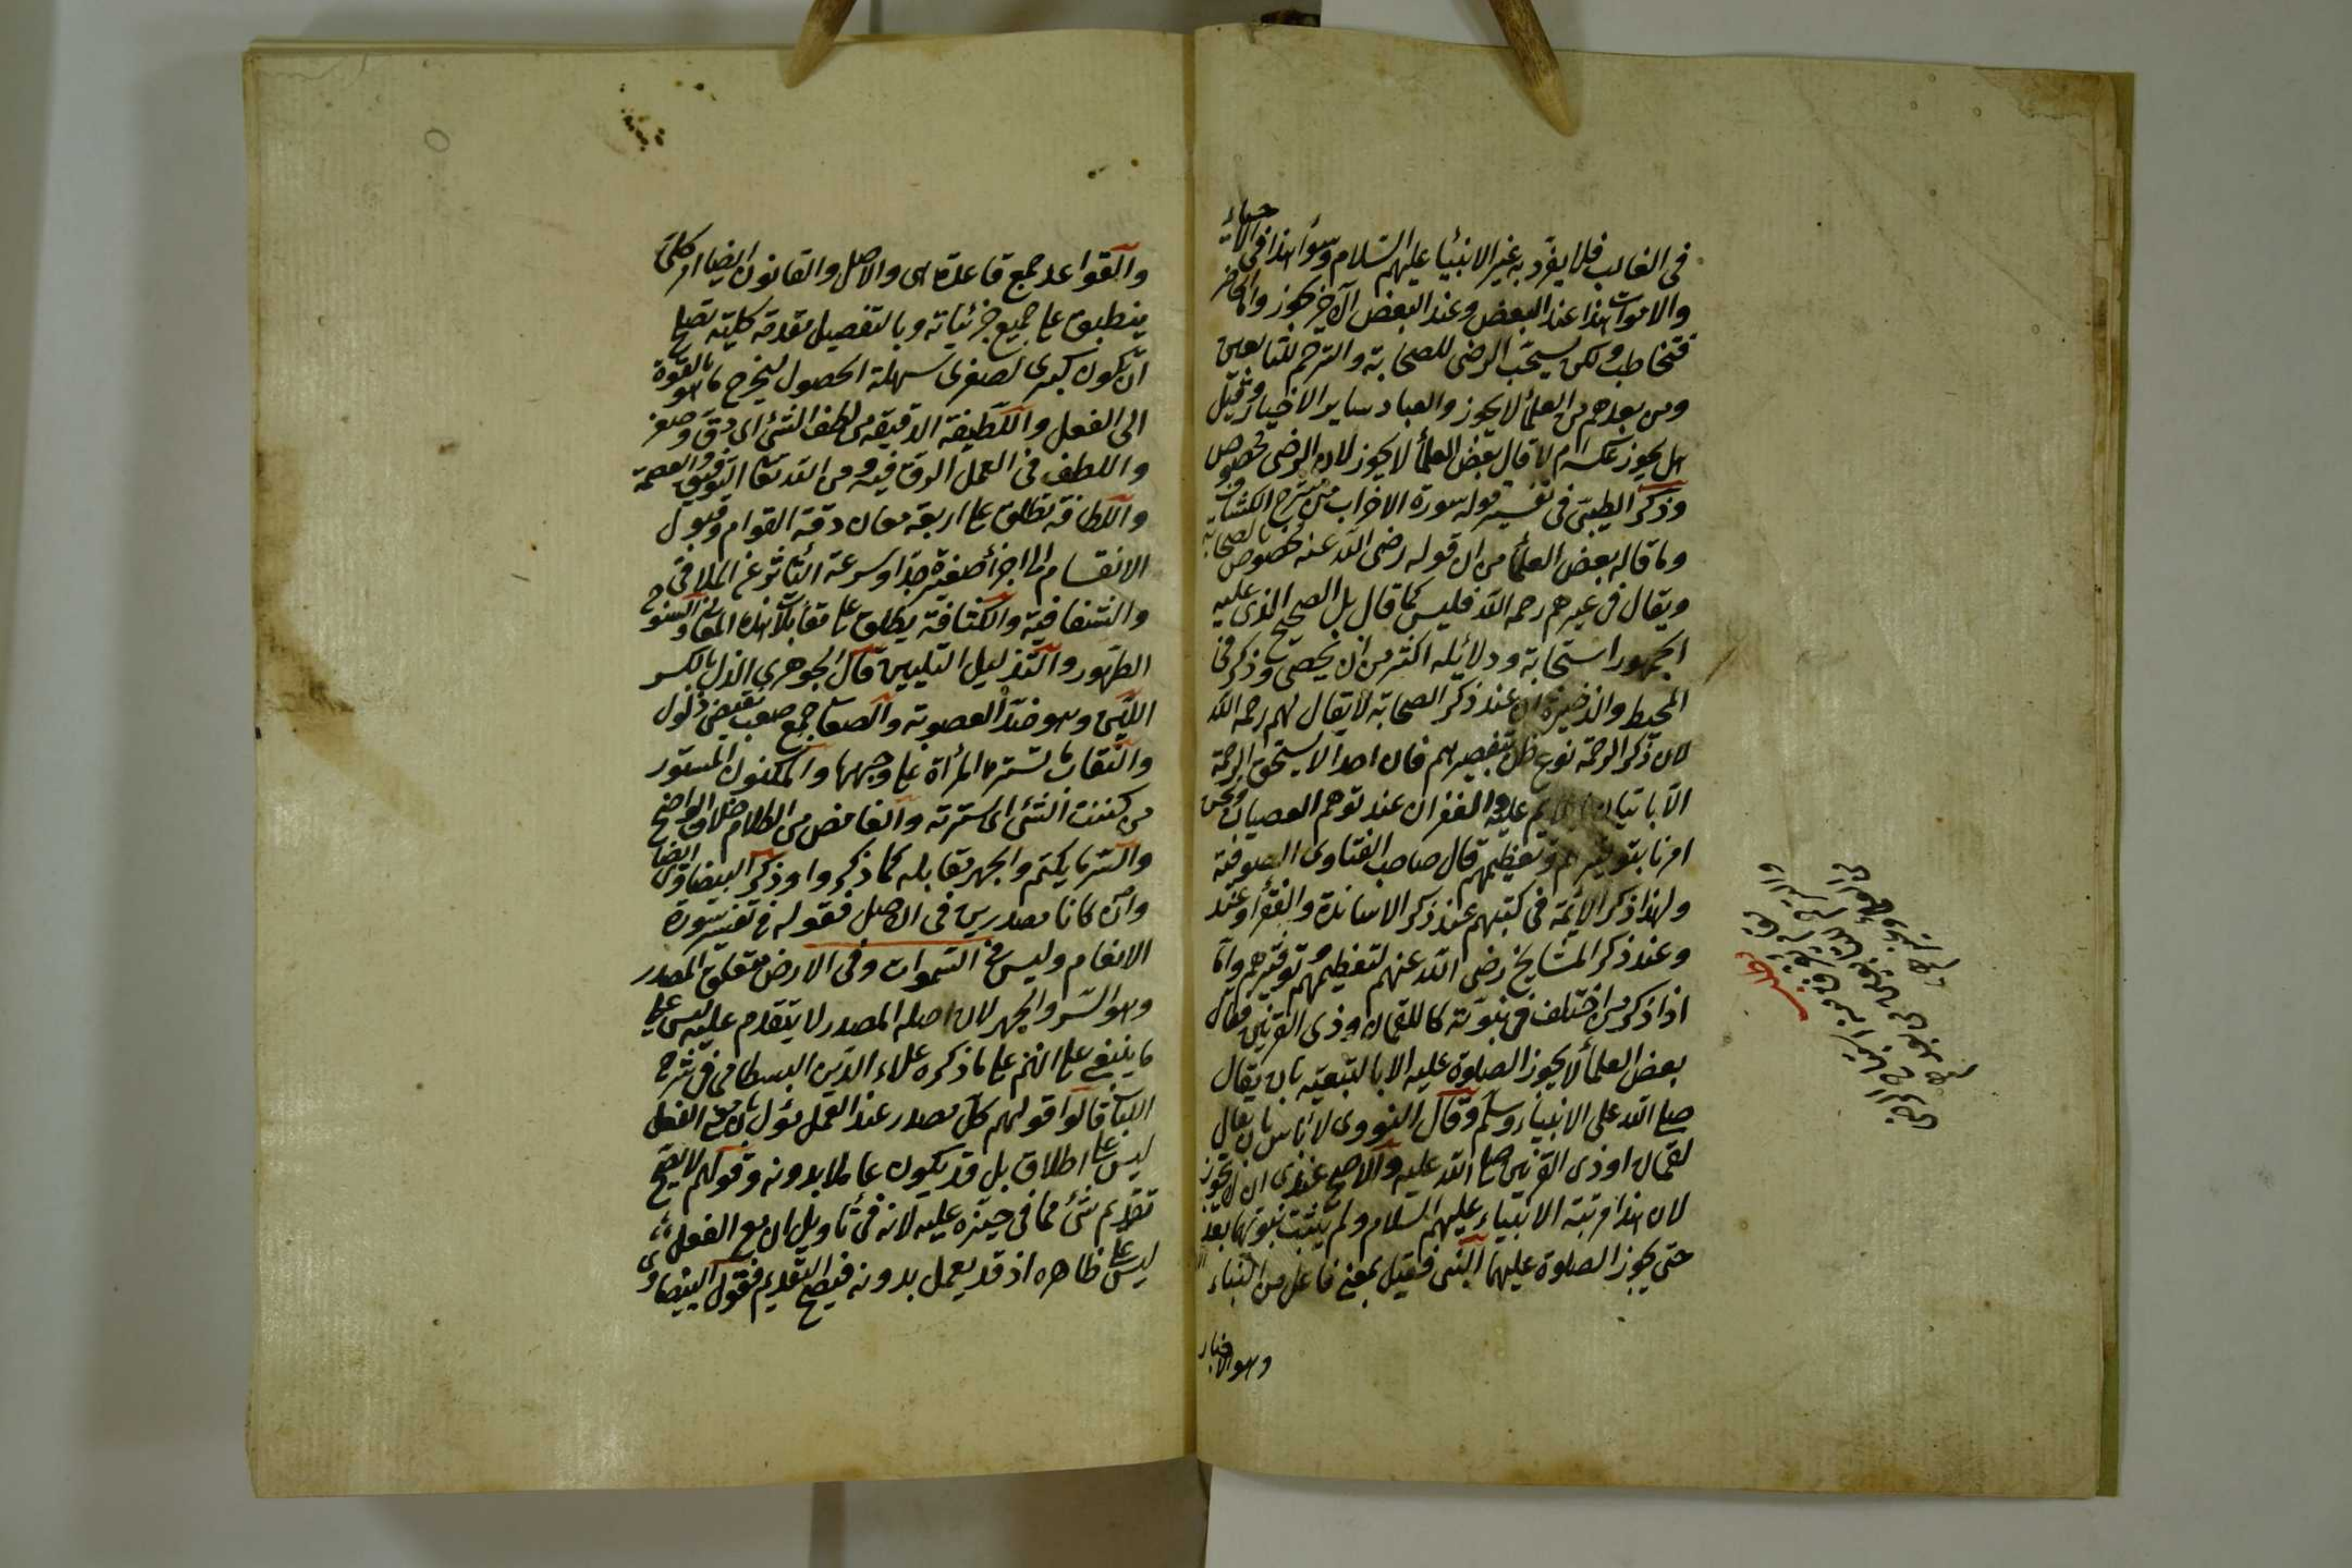 في الغالب فلا يفرد به غير الانبيا عليهم السلام وسواء هذا في الاحياء
والاموات هذا عند البعض وعند البعض الآخر يجوز والحاضر
فتخاطب ولكن يستحب الرضى للصحابة والترحم للتابعين
ومن بعدهم من العلماء والعباد وساير الاخيار وقيل
هل يجوز عكسه ام لا قال بعض العلماء لا يجوز لان الرضى مخصوص
وذكر الطيبى في تفسير قوله سورة الاحزاب من شرح الكشاف
وما قاله بعض العلماء من ان قوله رضى الله عنه مخصوص بالصحابة
ويقال في غيرهم رحمه الله فليس كما قال بل الصحيح الذى عليه
الجمهور استحبابه ودلائله اكثر من ان تحصى وذكر في
المحيط والذخيرة ان عند ذكر الصحابة لا يقال لهم رحمه الله
لان ذكر الرحمة نوع ظن بتقصيرهم فان احدا لا يستحق الرحمة
الا باتيان ما يلام عليه والغفران عند توهم العصيان ونحن
امرنا بتوقيرهم وتعظيمهم قال صاحب الفتاوى الصوفية
ولهذا ذكر الائمة في كتبهم عند ذكر الاساتذة والفقراء وعند
وعند ذكر المشايخ رضى الله عنهم لتعظيمهم وتوقيرهم واما
اذا ذكر من اختلف في نبوته كاللقمان وذى القرنين فقال
بعض العلماء لا يجوز الصلوة عليه الا بالتبعية بان يقال
صلى الله على الانبياء وسلم وقال النووى لا باس بان يقال
لقمان او ذى القرنين صلى الله عليه والاصح عندى ان لا يجوز
لان هذا مرتبة الانبياء عليهم السلام ولم يثبت نبوتهما بعد
حتى يجوز الصلوة عليهما النبى فعيل بمعنى فاعل من النباء
وهو الاخبار
والقواعد جمع قاعدة هى والاصل والقانون ايضا امر كلى
ينطبق على جميع جزئياته وبالتفصيل مقدمة كلية تصلح
ان تكون كبرى لصغرى سهلة الحصول ليخرج ما هو بالقوة
الى الفعل واللطيفة الدقيقة من لطف الشئ اى دق وصغر
واللطف في العمل الرفق فيه ومن الله تعالى التوفيق والعصمة
واللطافة تطلق على اربعة معان دقة القوام وقبول
الانقسام الى اجزاء صغيرة جدا وسرعة التأثر عن الملاقى
والشفافية والكثافة يطلق على مقابلات هذه المعانى والسنوح
الظهور والتذليل التليين قال الجوهرى الذل بالكسر
اللين وهو ضد الصعوبة والصعاب جمع صعب نقيض ذلول
والنقاب ما تستر به المرأة على وجهها والمكنون المستور
من كننت الشئ اى سترته والغامض من الكلام خلاف الواضح
والسر ما يكتم والجهر مقابله كما ذكروا وذكر البيضاوى ايضا
وان كانا مصدرين في الاصل فقوله في تفسير سورة
الانعام وليس في السموات وفي الارض متعلق المصدر
وهو السر والجهر لان اصله المصدر لا يتقدم عليه ليس على
ما ينبغى على انهم على ما ذكره علاء الدين البسطامى في شرح
اللباب قالوا قولهم كل مصدر عند العمل مؤول بان مع الفعل
ليس على اطلاق بل قد يكون عاملا بدونه وقولهم لا يصح
تقديم شئ مما في حيزه عليه لانه في تأويل ان مع الفعل
ليس على ظاهره اذ قد يعمل بدونه فيصح التقديم فقول البيضاوى